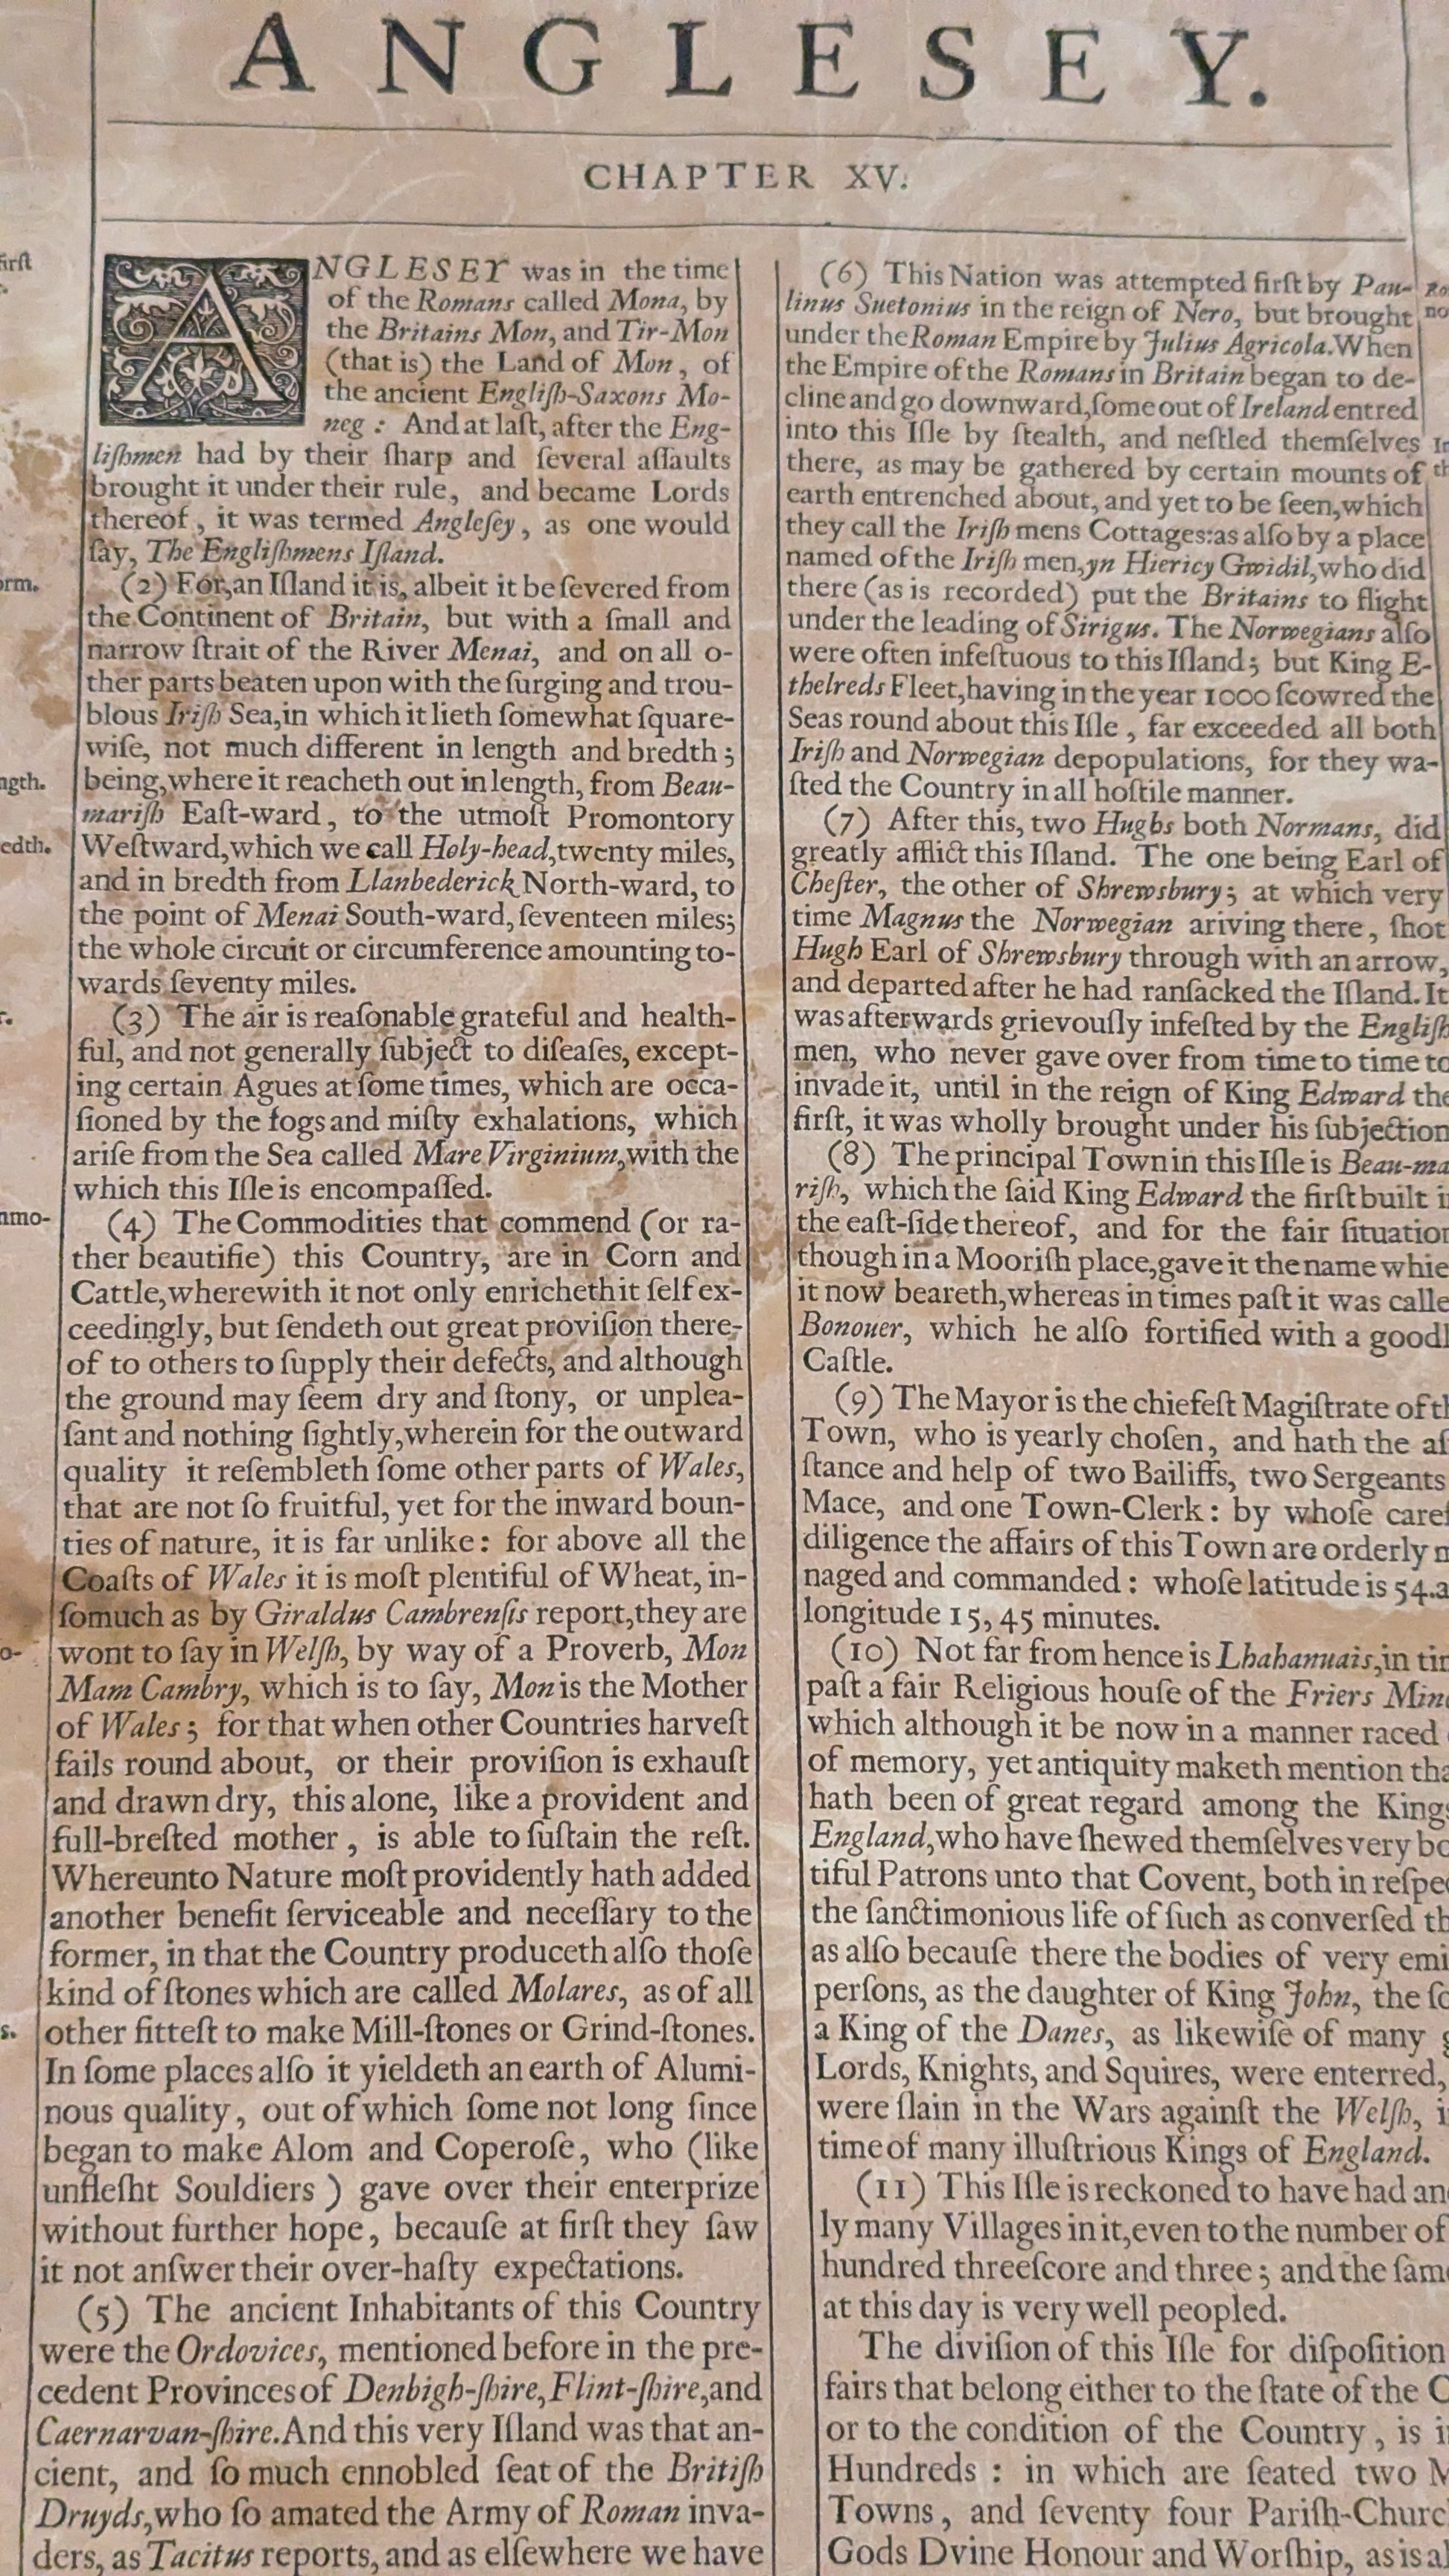 ANGLESEY.
CHAPTER XV.
ANGLESEY was in the time
of the Romans called Mona, by
the Britains Mon, and Tir-Mon
(that is) the Land of Mon, of
the ancient Engliſh-Saxons Mo-
neg : And at laſt, after the Eng-
liſhmen had by their ſharp and ſeveral aſſaults
brought it under their rule, and became Lords
thereof, it was termed Angleſey, as one would
ſay, The Engliſhmens Iſland.
(2) For, an Iſland it is, albeit it be ſevered from
the Continent of Britain, but with a ſmall and
narrow ſtrait of the River Menai, and on all o-
ther parts beaten upon with the ſurging and trou-
blous Iriſh Sea, in which it lieth ſomewhat ſquare-
wiſe, not much different in length and bredth ;
being, where it reacheth out in length, from Beau-
mariſh Eaſt-ward, to the utmoſt Promontory
Weſtward, which we call Holy-head, twenty miles,
and in bredth from Llanbederick North-ward, to
the point of Menai South-ward, ſeventeen miles;
the whole circuit or circumference amounting to-
wards ſeventy miles.
(3) The air is reaſonable grateful and health-
ful, and not generally ſubject to diſeaſes, except-
ing certain Agues at ſome times, which are occa-
ſioned by the fogs and miſty exhalations, which
ariſe from the Sea called Mare Virginium, with the
which this Iſle is encompaſſed.
(4) The Commodities that commend (or ra-
ther beautifie) this Country, are in Corn and
Cattle, wherewith it not only enricheth it ſelf ex-
ceedingly, but ſendeth out great proviſion there-
of to others to ſupply their defects, and although
the ground may ſeem dry and ſtony, or unplea-
ſant and nothing ſightly, wherein for the outward
quality it reſembleth ſome other parts of Wales,
that are not ſo fruitful, yet for the inward boun-
ties of nature, it is far unlike : for above all the
Coaſts of Wales it is moſt plentiful of Wheat, in-
ſomuch as by Giraldus Cambrenſis report, they are
wont to ſay in Welſh, by way of a Proverb, Mon
Mam Cambry, which is to ſay, Mon is the Mother
of Wales ; for that when other Countries harveſt
fails round about, or their proviſion is exhauſt
and drawn dry, this alone, like a provident and
full-breſted mother, is able to ſuſtain the reſt.
Whereunto Nature moſt providently hath added
another benefit ſerviceable and neceſſary to the
former, in that the Country produceth alſo thoſe
kind of ſtones which are called Molares, as of all
other fitteſt to make Mill-ſtones or Grind-ſtones.
In ſome places alſo it yieldeth an earth of Alumi-
nous quality, out of which ſome not long ſince
began to make Alom and Coperoſe, who (like
unfleſht Souldiers ) gave over their enterprize
without further hope, becauſe at firſt they ſaw
it not anſwer their over-haſty expectations.
(5) The ancient Inhabitants of this Country
were the Ordovices, mentioned before in the pre-
cedent Provinces of Denbigh-ſhire, Flint-ſhire, and
Caernarvan-ſhire. And this very Iſland was that an-
cient, and ſo much ennobled ſeat of the Britiſh
Druyds, who ſo amated the Army of Roman inva-
ders, as Tacitus reports, and as elſewhere we have
(6) This Nation was attempted firſt by Pau-
linus Suetonius in the reign of Nero, but brought
under the Roman Empire by Julius Agricola. When
the Empire of the Romans in Britain began to de-
cline and go downward, ſome out of Ireland entred
into this Iſle by ſtealth, and neſtled themſelves
there, as may be gathered by certain mounts of
earth entrenched about, and yet to be ſeen, which
they call the Iriſh mens Cottages: as alſo by a place
named of the Iriſh men, yn Hiericy Gwidil, who did
there (as is recorded) put the Britains to flight
under the leading of Sirigus. The Norwegians alſo
were often infeſtuous to this Iſland ; but King E-
thelreds Fleet, having in the year 1000 ſcowred the
Seas round about this Iſle, far exceeded all both
Iriſh and Norwegian depopulations, for they wa-
ſted the Country in all hoſtile manner.
(7) After this, two Hughs both Normans, did
greatly afflict this Iſland. The one being Earl of
Cheſter, the other of Shrewsbury ; at which very
time Magnus the Norwegian ariving there, ſhot
Hugh Earl of Shrewsbury through with an arrow,
and departed after he had ranſacked the Iſland. It
was afterwards grievouſly infeſted by the Engliſh
men, who never gave over from time to time to
invade it, until in the reign of King Edward the
firſt, it was wholly brought under his ſubjection
(8) The principal Town in this Iſle is Beau-ma
riſh, which the ſaid King Edward the firſt built i
the eaſt-ſide thereof, and for the fair ſituation
though in a Mooriſh place, gave it the name whic
it now beareth, whereas in times paſt it was calle
Bonouer, which he alſo fortified with a goodl
Caſtle.
(9) The Mayor is the chiefeſt Magiſtrate of th
Town, who is yearly choſen, and hath the aſ
ſtance and help of two Bailiffs, two Sergeants
Mace, and one Town-Clerk : by whoſe caref
diligence the affairs of this Town are orderly m
naged and commanded : whoſe latitude is 54. a
longitude 15, 45 minutes.
(10) Not far from hence is Lhahanuais, in tim
paſt a fair Religious houſe of the Friers Mino
which although it be now in a manner raced
of memory, yet antiquity maketh mention tha
hath been of great regard among the Kings
England, who have ſhewed themſelves very bo
tiful Patrons unto that Covent, both in reſpe
the ſanctimonious life of ſuch as converſed th
as alſo becauſe there the bodies of very emi
perſons, as the daughter of King John, the ſo
a King of the Danes, as likewiſe of many g
Lords, Knights, and Squires, were enterred,
were ſlain in the Wars againſt the Welſh, i
time of many illuſtrious Kings of England.
(11) This Iſle is reckoned to have had an
ly many Villages in it, even to the number of
hundred threeſcore and three ; and the ſame
at this day is very well peopled.
The diviſion of this Iſle for diſpoſition
fairs that belong either to the ſtate of the C
or to the condition of the Country, is i
Hundreds : in which are ſeated two M
Towns, and ſeventy four Pariſh-Churc
Gods Dvine Honour and Worſhip, as is al